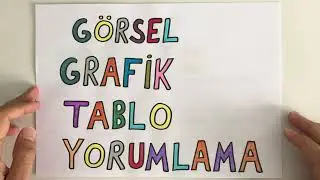 GÖRSEL
GRAFİK
TABLO
YORUMLAMA